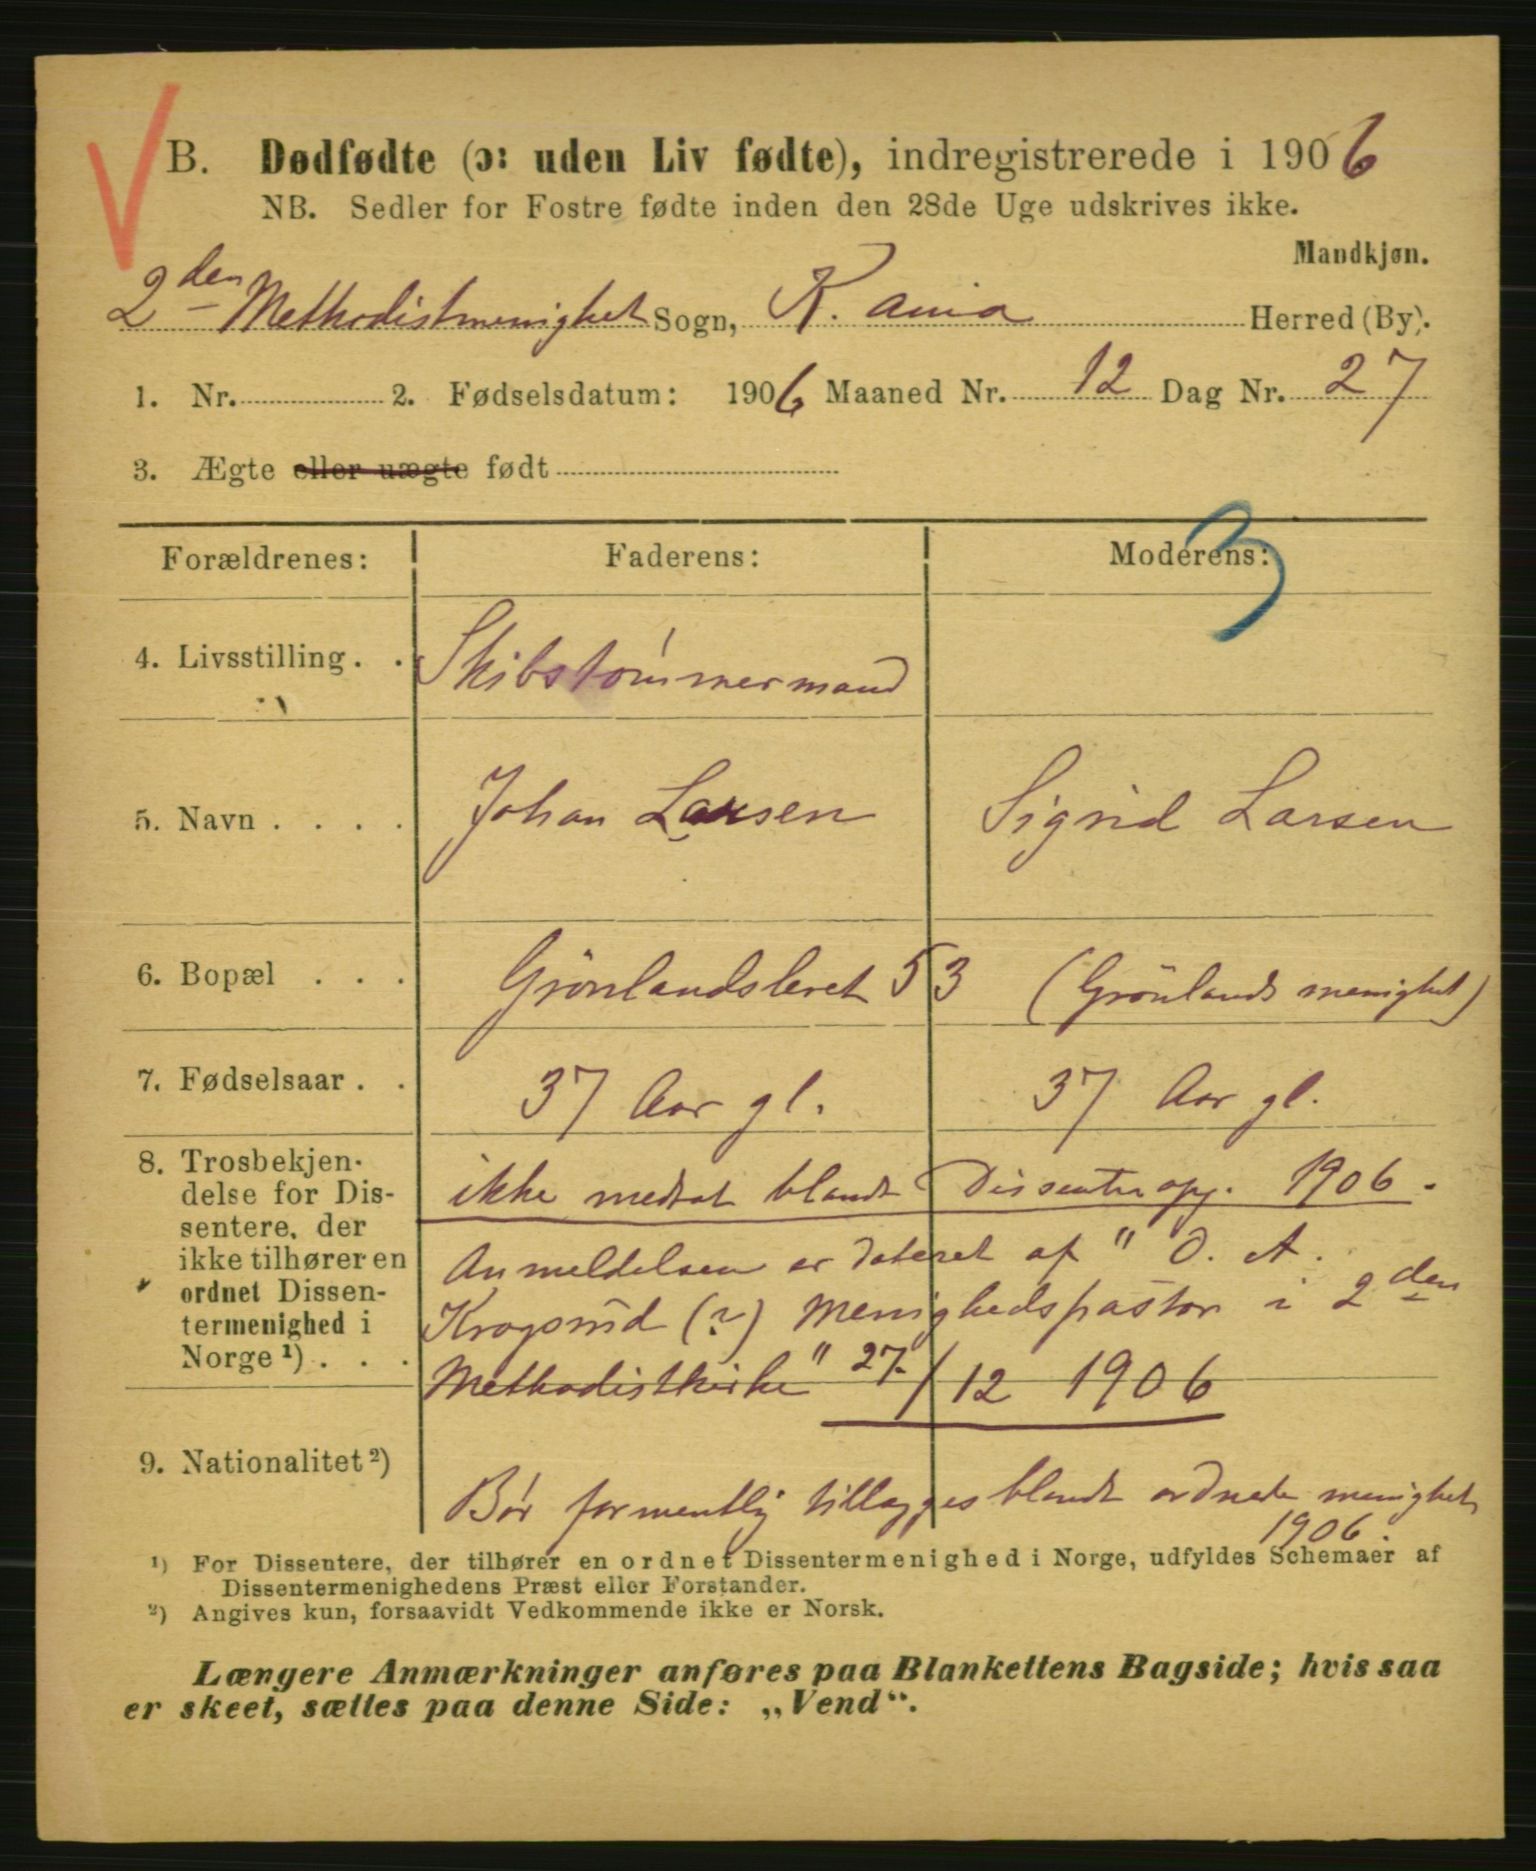 B. Dødfødte (ɔ: uden Liv fødte), indregistrerede i 1906
NB. Sedler for Fostre fødte inden den 28de Uge udskrives ikke.
Mandkjøn.
2den Methodistmenighet Sogn, K.ania Herred (By).
1. Nr. 2. Fødselsdatum: 1906 Maaned Nr. 12 Dag Nr. 27
3. Ægte eller uægte født
3
Forældrenes: Faderens: Moderens:
4. Livsstilling . . Skibstömmermand
5. Navn . . . . Johan Larsen Sigrid Larsen
6. Bopæl . . . Grönlandsleret 53 (Grönlands menighet)
7. Fødselsaar . . 37 Aar gl. 37 Aar gl.
8. Trosbekjen-
delse for Dis-
sentere, der
ikke tilhører en
ordnet Dissen-
termenighed i
Norge ¹) . . .
ikke medtat blandt Dissenteropg. 1906.
Anmeldelsen er dateret af " O. A.
Krogsrud (?) Menighedspastor i 2den
Methodistkirke " 27./12 1906
9. Nationalitet ²)
Bör formentlig tillægges blandt ordnede menighet
1906.
¹) For Dissentere, der tilhører en ordnet Dissentermenighed i Norge, udfyldes Schemaer af
Dissentermenighedens Præst eller Forstander.
²) Angives kun, forsaavidt Vedkommende ikke er Norsk.
Længere Anmærkninger anføres paa Blankettens Bagside; hvis saa
er skeet, sættes paa denne Side: „Vend“.